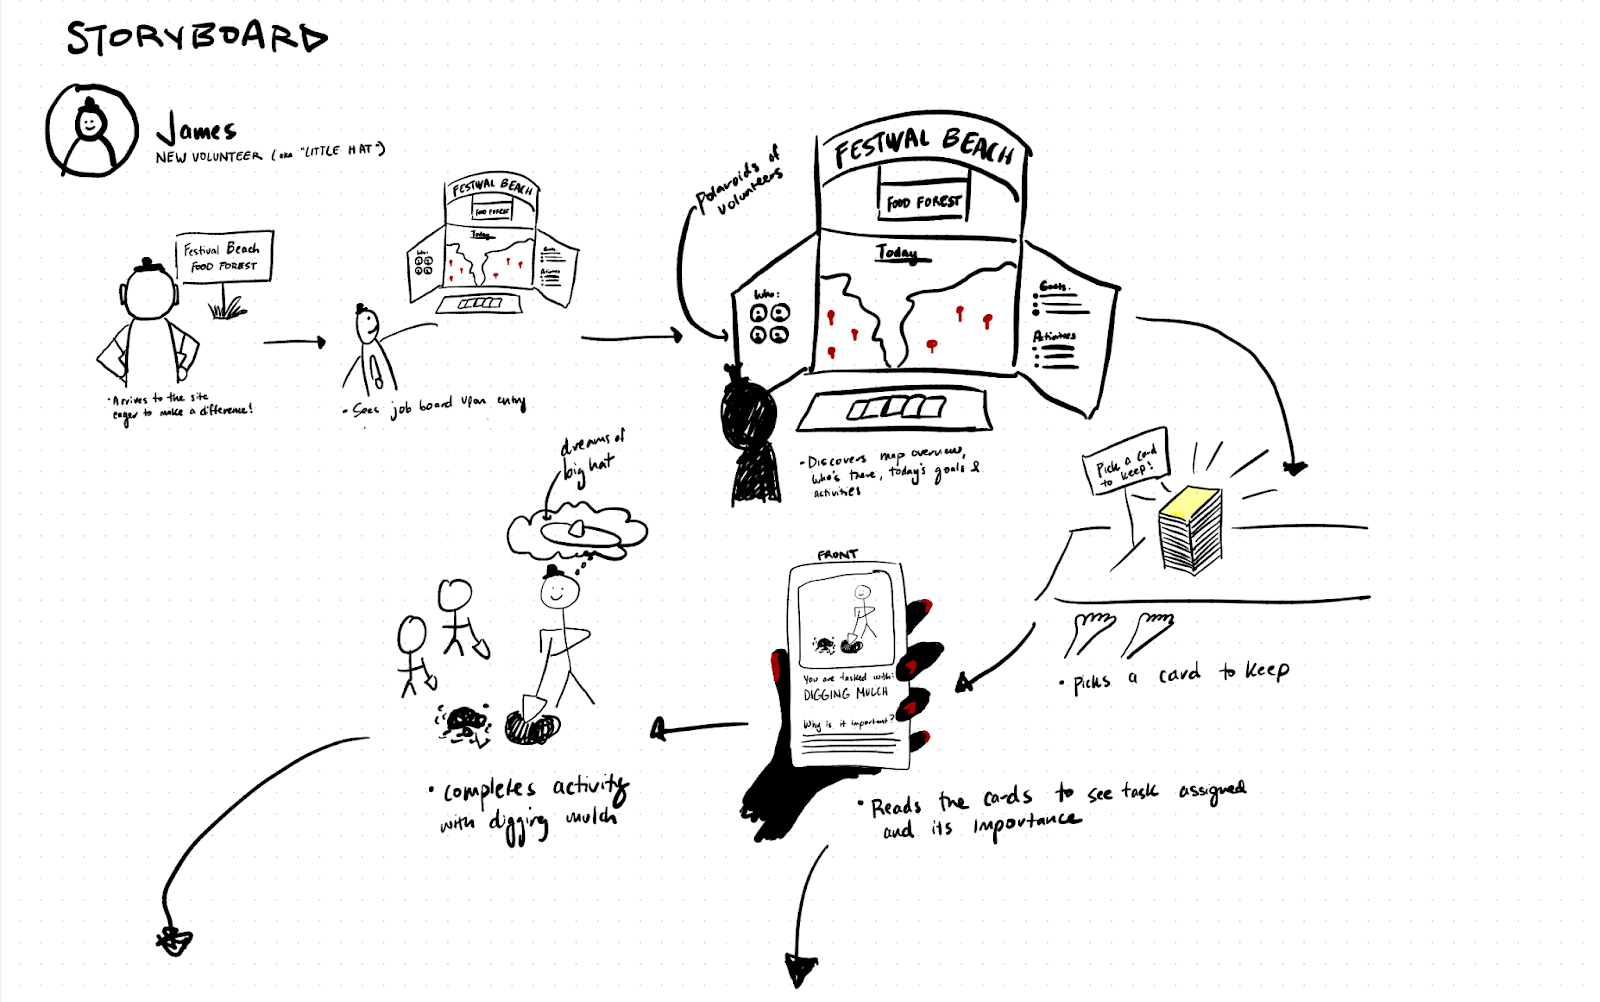 STORYBOARD
James
NEW VOLUNTEER (aka "LITTLE HAT")
Festival Beach
FOOD FOREST
• Arrives to the site
eager to make a difference!
FESTIVAL BEACH
FOOD FOREST
Today
Who:
Goals
Activities
• Sees job board upon entry
Polaroids of
volunteers
FESTIVAL BEACH
FOOD FOREST
Today
Who:
Goals.
Activities
• Discovers map overview,
who's there, today's goals &
activities
Pick a card
to keep!
• Picks a card to keep
FRONT
You are tasked with:
DIGGING MULCH
Why is it important?
• Reads the cards to see task assigned
and its importance
dreams of
big hat
• completes activity
with digging mulch